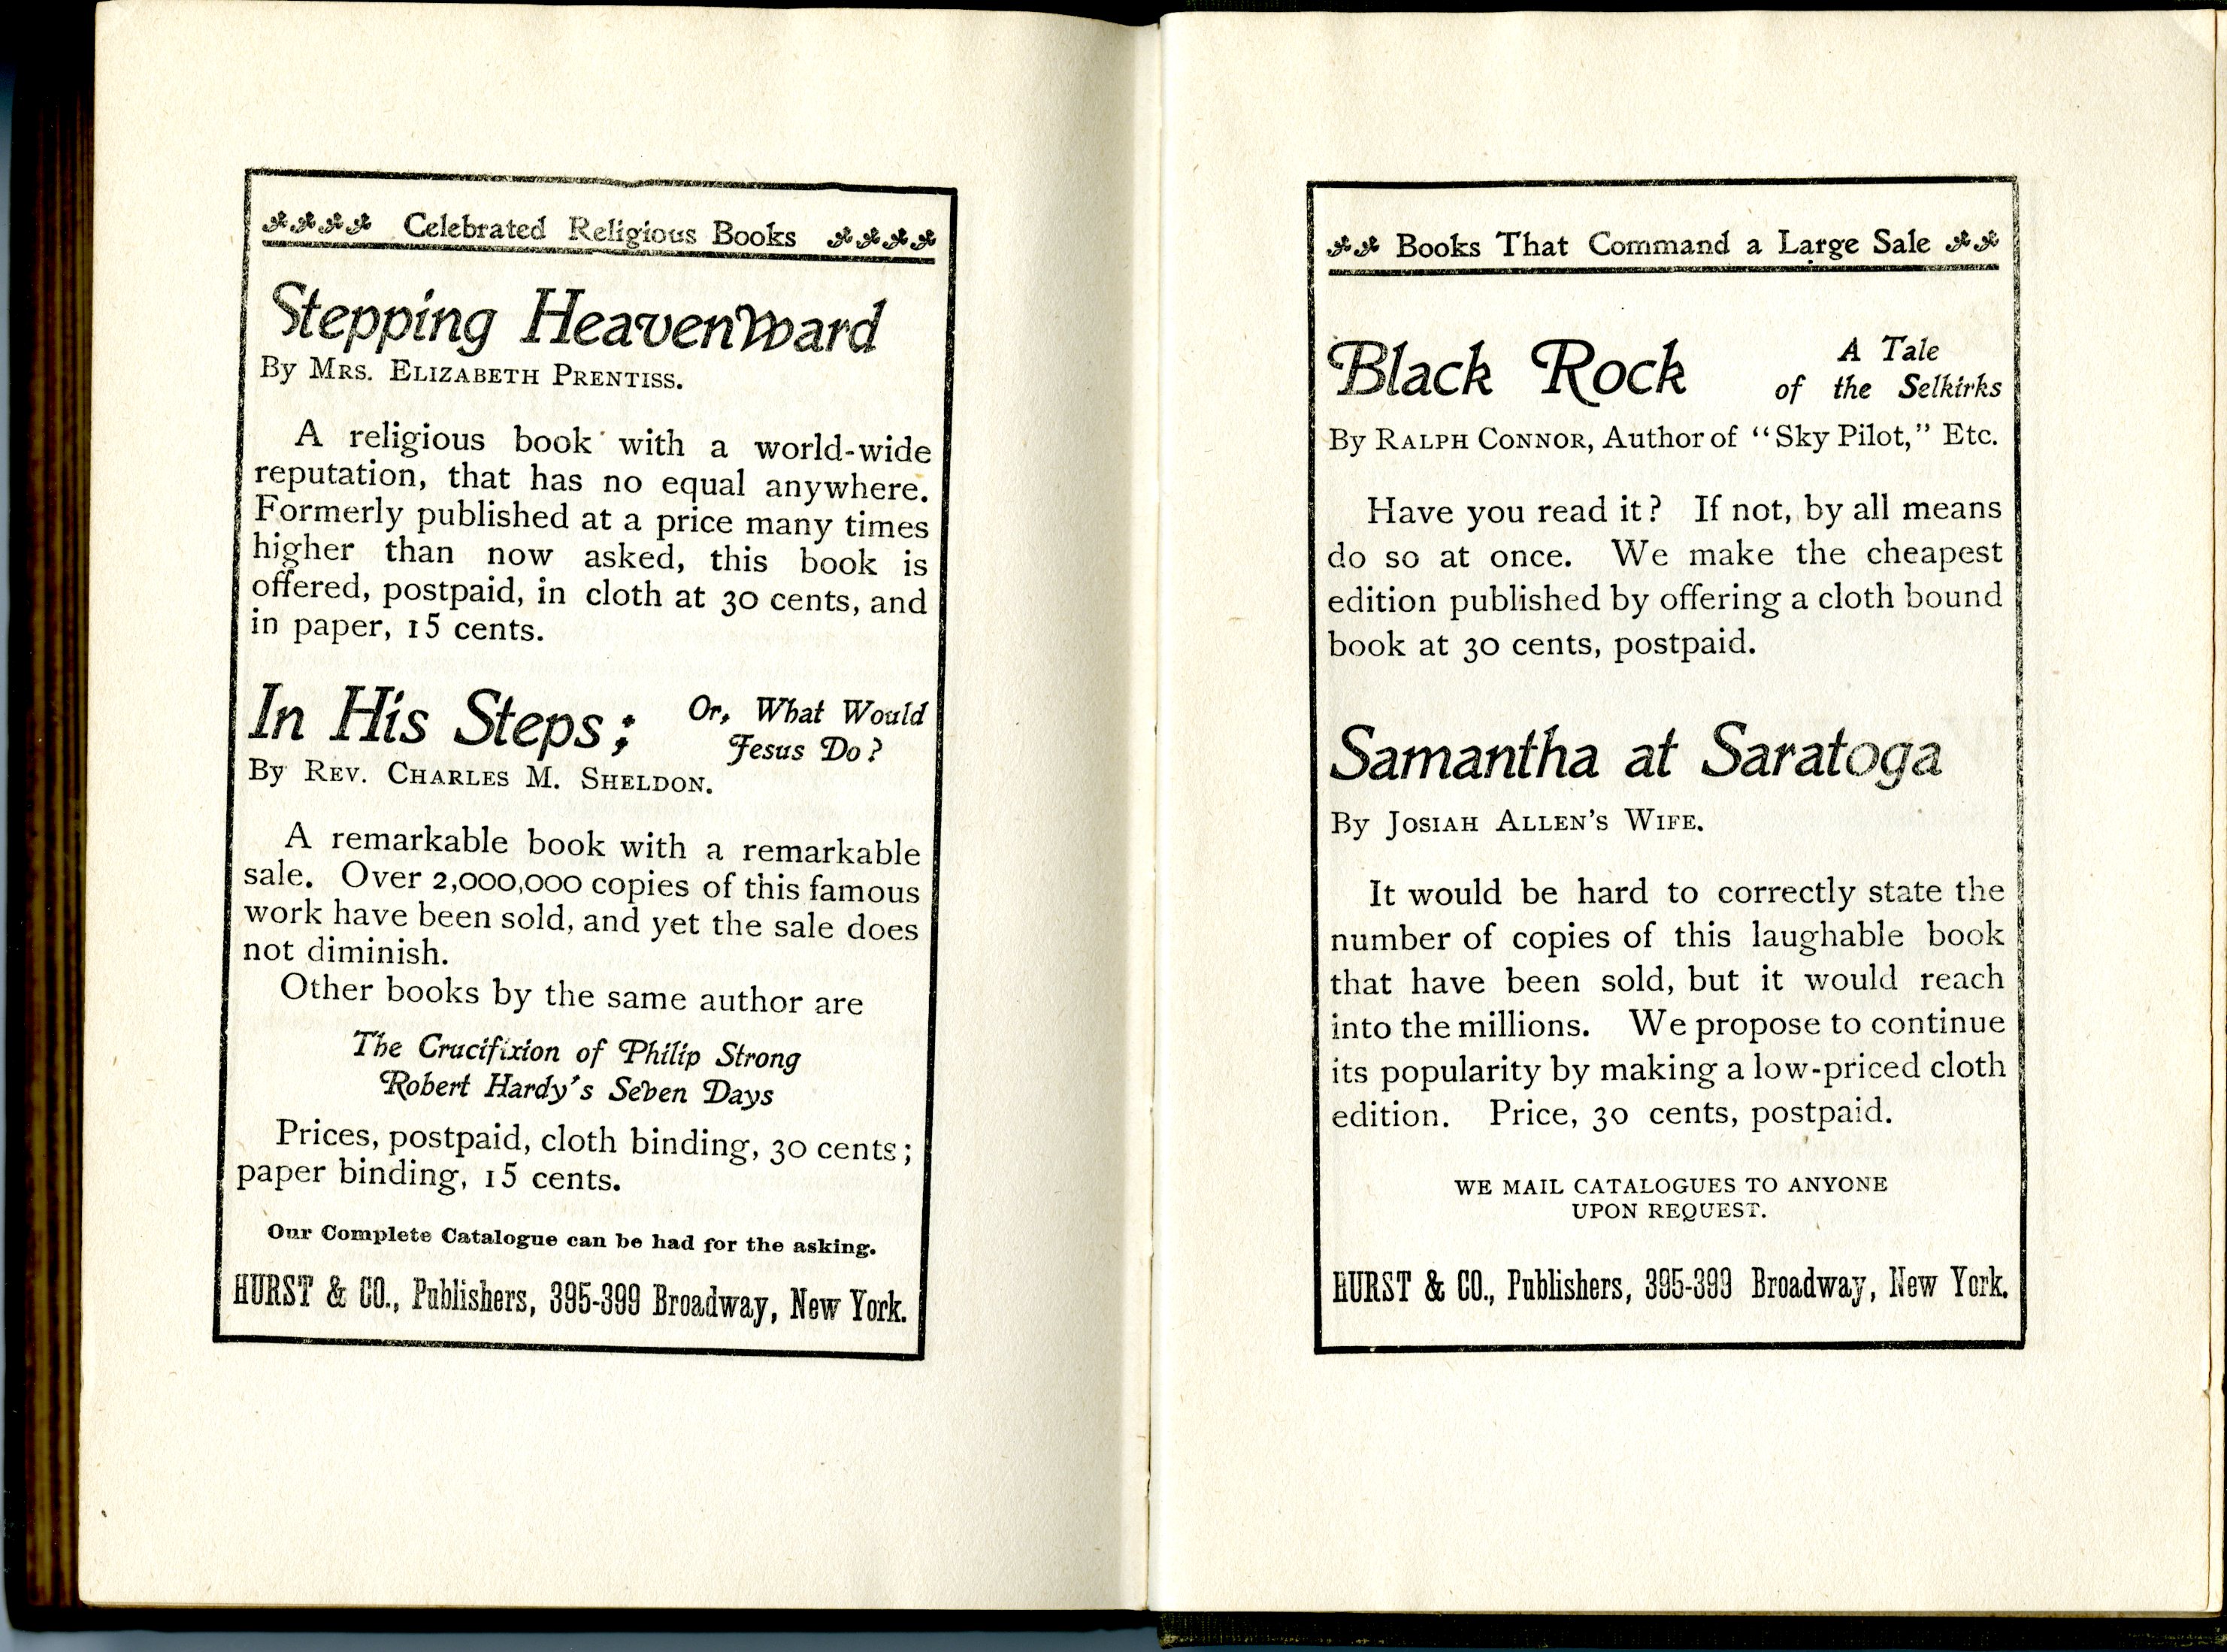 Celebrated Religious Books
Stepping Heavenward
By MRS. ELIZABETH PRENTISS.
A religious book with a world-wide
reputation, that has no equal anywhere.
Formerly published at a price many times
higher than now asked, this book is
offered, postpaid, in cloth at 30 cents, and
in paper, 15 cents.
In His Steps; Or, What Would
Jesus Do?
By REV. CHARLES M. SHELDON.
A remarkable book with a remarkable
sale. Over 2,000,000 copies of this famous
work have been sold, and yet the sale does
not diminish.
Other books by the same author are
The Crucifixion of Philip Strong
Robert Hardy's Seven Days
Prices, postpaid, cloth binding, 30 cents;
paper binding, 15 cents.
Our Complete Catalogue can be had for the asking.
HURST & CO., Publishers, 395-399 Broadway, New York.
Books That Command a Large Sale
Black Rock A Tale
of the Selkirks
By RALPH CONNOR, Author of "Sky Pilot," Etc.
Have you read it? If not, by all means
do so at once. We make the cheapest
edition published by offering a cloth bound
book at 30 cents, postpaid.
Samantha at Saratoga
By JOSIAH ALLEN'S WIFE.
It would be hard to correctly state the
number of copies of this laughable book
that have been sold, but it would reach
into the millions. We propose to continue
its popularity by making a low-priced cloth
edition. Price, 30 cents, postpaid.
WE MAIL CATALOGUES TO ANYONE
UPON REQUEST.
HURST & CO., Publishers, 395-399 Broadway, New York.